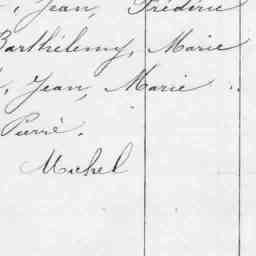 , Jean, Frédéric
Barthélemy, Marie
, Jean, Marie
Pierre.
Michel